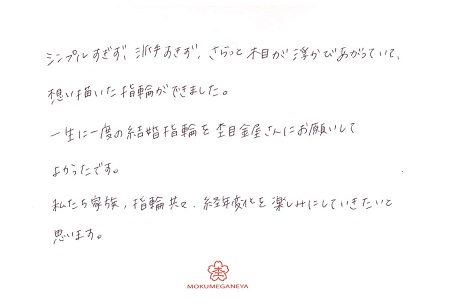 シンプルすぎず、派手すぎず、さらっと木目が浮かびあがっていて、
想い描いた指輪ができました。
一生に一度の結婚指輪を杢目金屋さんにお願いして
よかったです。
私たち家族、指輪共々、経年変化を楽しみにしていきたいと
思います。
MOKUMEGANEYA